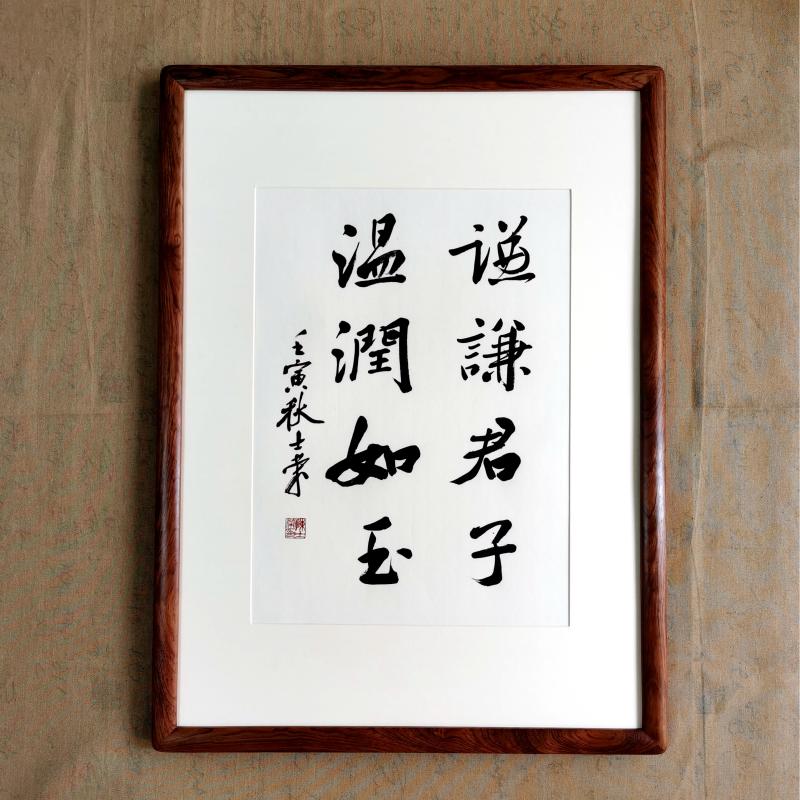 谦謙君子
温潤如玉
壬寅秋士荣